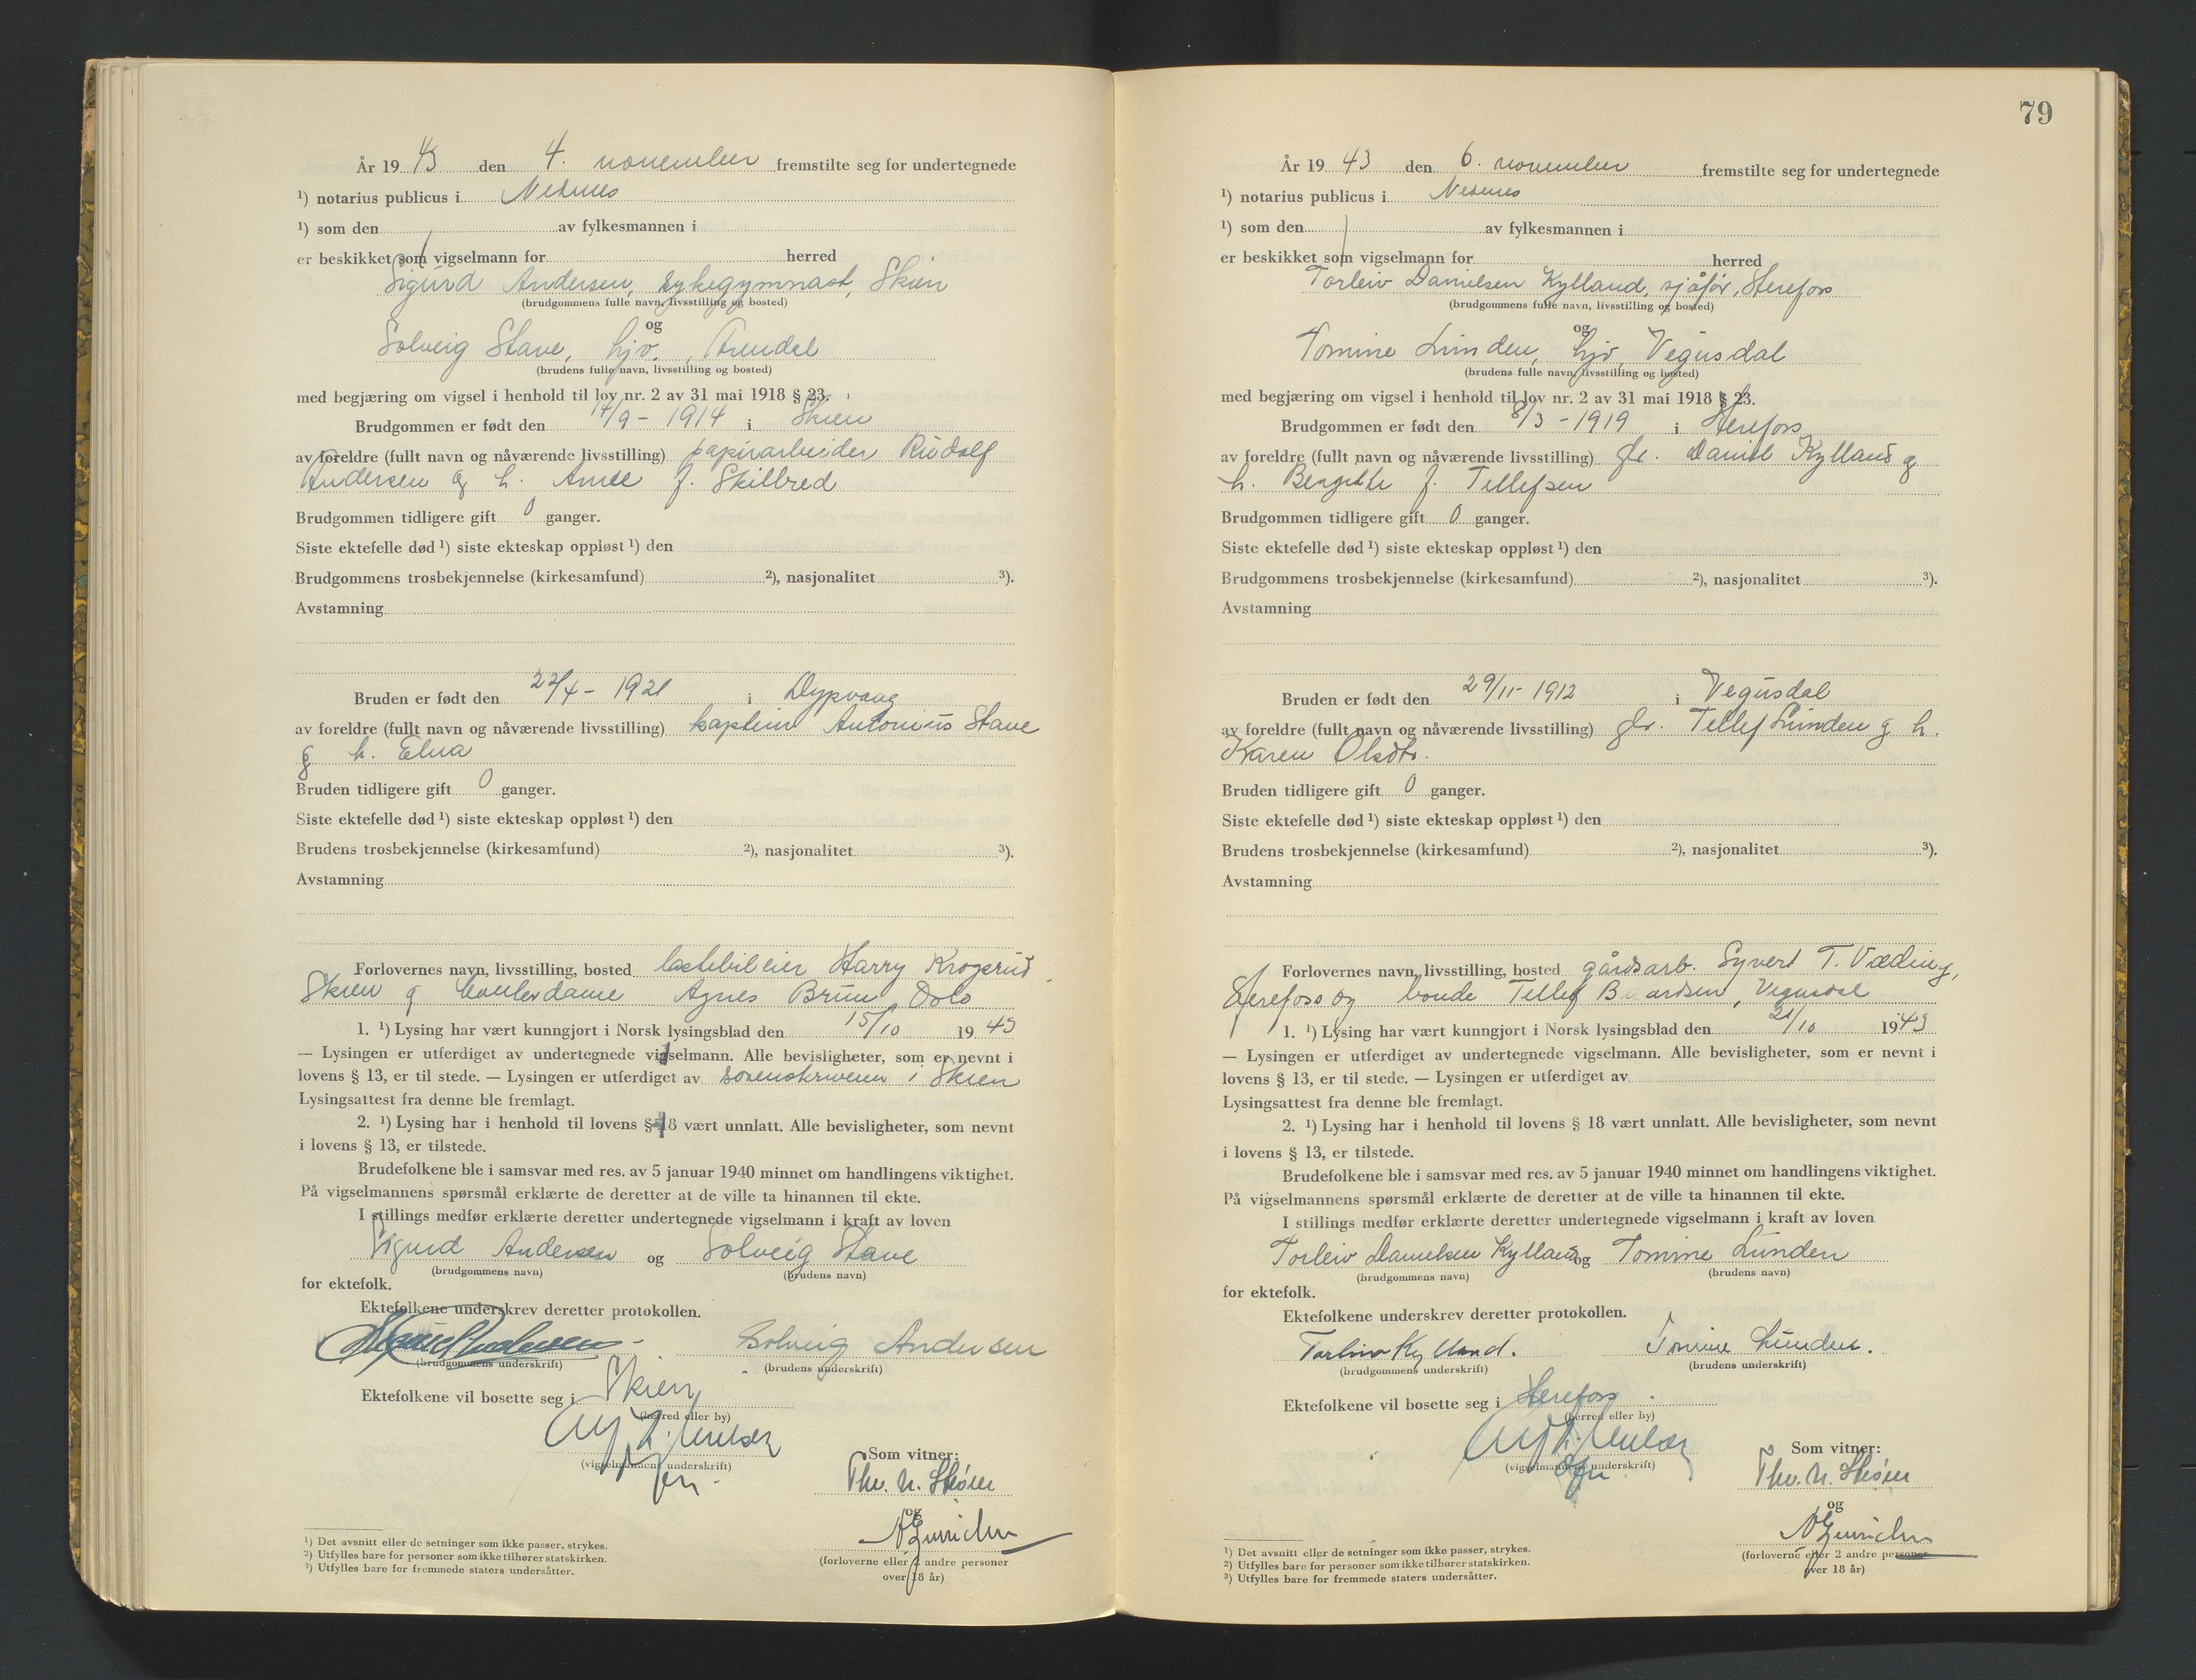 År 19 43 den 4. november fremstilte seg for undertegnede
¹) notarius publicus i Nedenes
¹) som den av fylkesmannen i
er beskikket som vigselmann for herred
Sigurd Andersen, sykegymnast, Skien
(brudgommens fulle navn, livsstilling og bosted)
og
Solveig Stave, hjv., Arendal
(brudens fulle navn, livsstilling og bosted)
med begjæring om vigsel i henhold til lov nr. 2 av 31 mai 1918 § 23.
Brudgommen er født den 14/9 - 1914 i Skien
av foreldre (fullt navn og nåværende livsstilling) papirarbeider Rudolf
Andersen og h. f. Skilbred
Brudgommen tidligere gift 0 ganger.
Siste ektefelle død ¹) siste ekteskap oppløst ¹) den
Brudgommens trosbekjennelse (kirkesamfund) ²), nasjonalitet ³).
Avstamning
Bruden er født den 22/4 - 1921 i Dypvaag
av foreldre (fullt navn og nåværende livsstilling) kaptein Antonius Stave
og h. Elna
Bruden tidligere gift 0 ganger.
Siste ektefelle død ¹) siste ekteskap oppløst ¹) den
Brudens trosbekjennelse (kirkesamfund) ²), nasjonalitet ³).
Avstamning
Forlovernes navn, livsstilling, bosted lastebileier Harry Krogsrud,
Skien og Agnes Bruun, Oslo
1. ¹) Lysing har vært kunngjort i Norsk lysingsblad den 15/10 19 43
— Lysingen er utferdiget av undertegnede vigselmann. Alle bevisligheter, som er nevnt i
lovens § 13, er til stede. — Lysingen er utferdiget av sorenskriveren i Skien
Lysingsattest fra denne ble fremlagt.
2. ¹) Lysing har i henhold til lovens § 18 vært unnlatt. Alle bevisligheter, som nevnt
i lovens § 13, er tilstede.
Brudefolkene ble i samsvar med res. av 5 januar 1940 minnet om handlingens viktighet.
På vigselmannens spørsmål erklærte de deretter at de ville ta hinannen til ekte.
I stillings medfør erklærte deretter undertegnede vigselmann i kraft av loven
Sigurd Andersen og Solveig Stave
(brudgommens navn) (brudens navn)
for ektefolk.
Ektefolkene underskrev deretter protokollen.
Sigurd Andersen Solveig Andersen
(brudgommens underskrift) (brudens underskrift)
Ektefolkene vil bosette seg i Skien
(herred eller by)
Som vitner:
(vigselmannens underskrift)
Thv. N. Skøien
og
(forloverne eller 2 andre personer
over 18 år)
¹) Det avsnitt eller de setninger som ikke passer, strykes.
²) Utfylles bare for personer som ikke tilhører statskirken.
³) Utfylles bare for fremmede staters undersåtter.
79
År 19 43 den 6. november fremstilte seg for undertegnede
¹) notarius publicus i Nedenes
¹) som den av fylkesmannen i
er beskikket som vigselmann for herred
Torleiv Danielsen Kylland, sjåfør, Herefoss
(brudgommens fulle navn, livsstilling og bosted)
og
Tomine Lunden, hjv, Vegusdal
(brudens fulle navn, livsstilling og bosted)
med begjæring om vigsel i henhold til lov nr. 2 av 31 mai 1918 § 23.
Brudgommen er født den 8/3 - 1919 i Herefoss
av foreldre (fullt navn og nåværende livsstilling) gbr. Daniel Kylland og
h. Bergitte f. Tellefsen
Brudgommen tidligere gift 0 ganger.
Siste ektefelle død ¹) siste ekteskap oppløst ¹) den
Brudgommens trosbekjennelse (kirkesamfund) ²), nasjonalitet ³).
Avstamning
Bruden er født den 29/11 - 1912 i Vegusdal
av foreldre (fullt navn og nåværende livsstilling) gbr. Tellef Lunden og h.
Karen Olsdtr.
Bruden tidligere gift 0 ganger.
Siste ektefelle død ¹) siste ekteskap oppløst ¹) den
Brudens trosbekjennelse (kirkesamfund) ²), nasjonalitet ³).
Avstamning
Forlovernes navn, livsstilling, bosted gårdsarb. Syvert T. Væding,
Herefoss og bonde Tellef, Vegusdal
1. ¹) Lysing har vært kunngjort i Norsk lysingsblad den 21/10 19 43
— Lysingen er utferdiget av undertegnede vigselmann. Alle bevisligheter, som er nevnt i
lovens § 13, er til stede. — Lysingen er utferdiget av
Lysingsattest fra denne ble fremlagt.
2. ¹) Lysing har i henhold til lovens § 18 vært unnlatt. Alle bevisligheter, som nevnt
i lovens § 13, er tilstede.
Brudefolkene ble i samsvar med res. av 5 januar 1940 minnet om handlingens viktighet.
På vigselmannens spørsmål erklærte de deretter at de ville ta hinannen til ekte.
I stillings medfør erklærte deretter undertegnede vigselmann i kraft av loven
Torleiv Danielsen Kylland og Tomine Lunden
(brudgommens navn) (brudens navn)
for ektefolk.
Ektefolkene underskrev deretter protokollen.
Torleiv Kylland. Tomine Lunden.
(brudgommens underskrift) (brudens underskrift)
Ektefolkene vil bosette seg i Herefoss
(herred eller by)
Som vitner:
(vigselmannens underskrift)
Thv. N. Skøien
og
(forloverne eller 2 andre personer
over 18 år)
¹) Det avsnitt eller de setninger som ikke passer, strykes.
²) Utfylles bare for personer som ikke tilhører statskirken.
³) Utfylles bare for fremmede staters undersåtter.